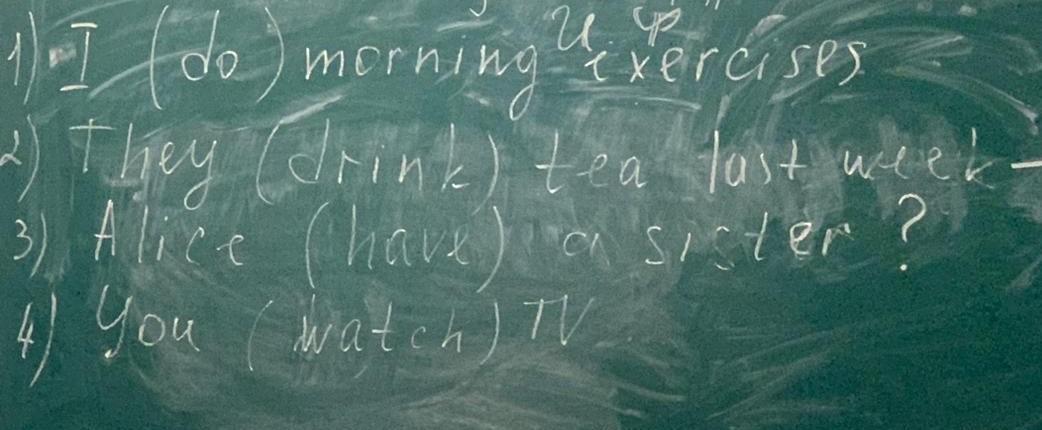 1) I (do) morning exercises
2) They (drink) tea last week –
3) Alice (have) a sister ?
4) You (watch) TV